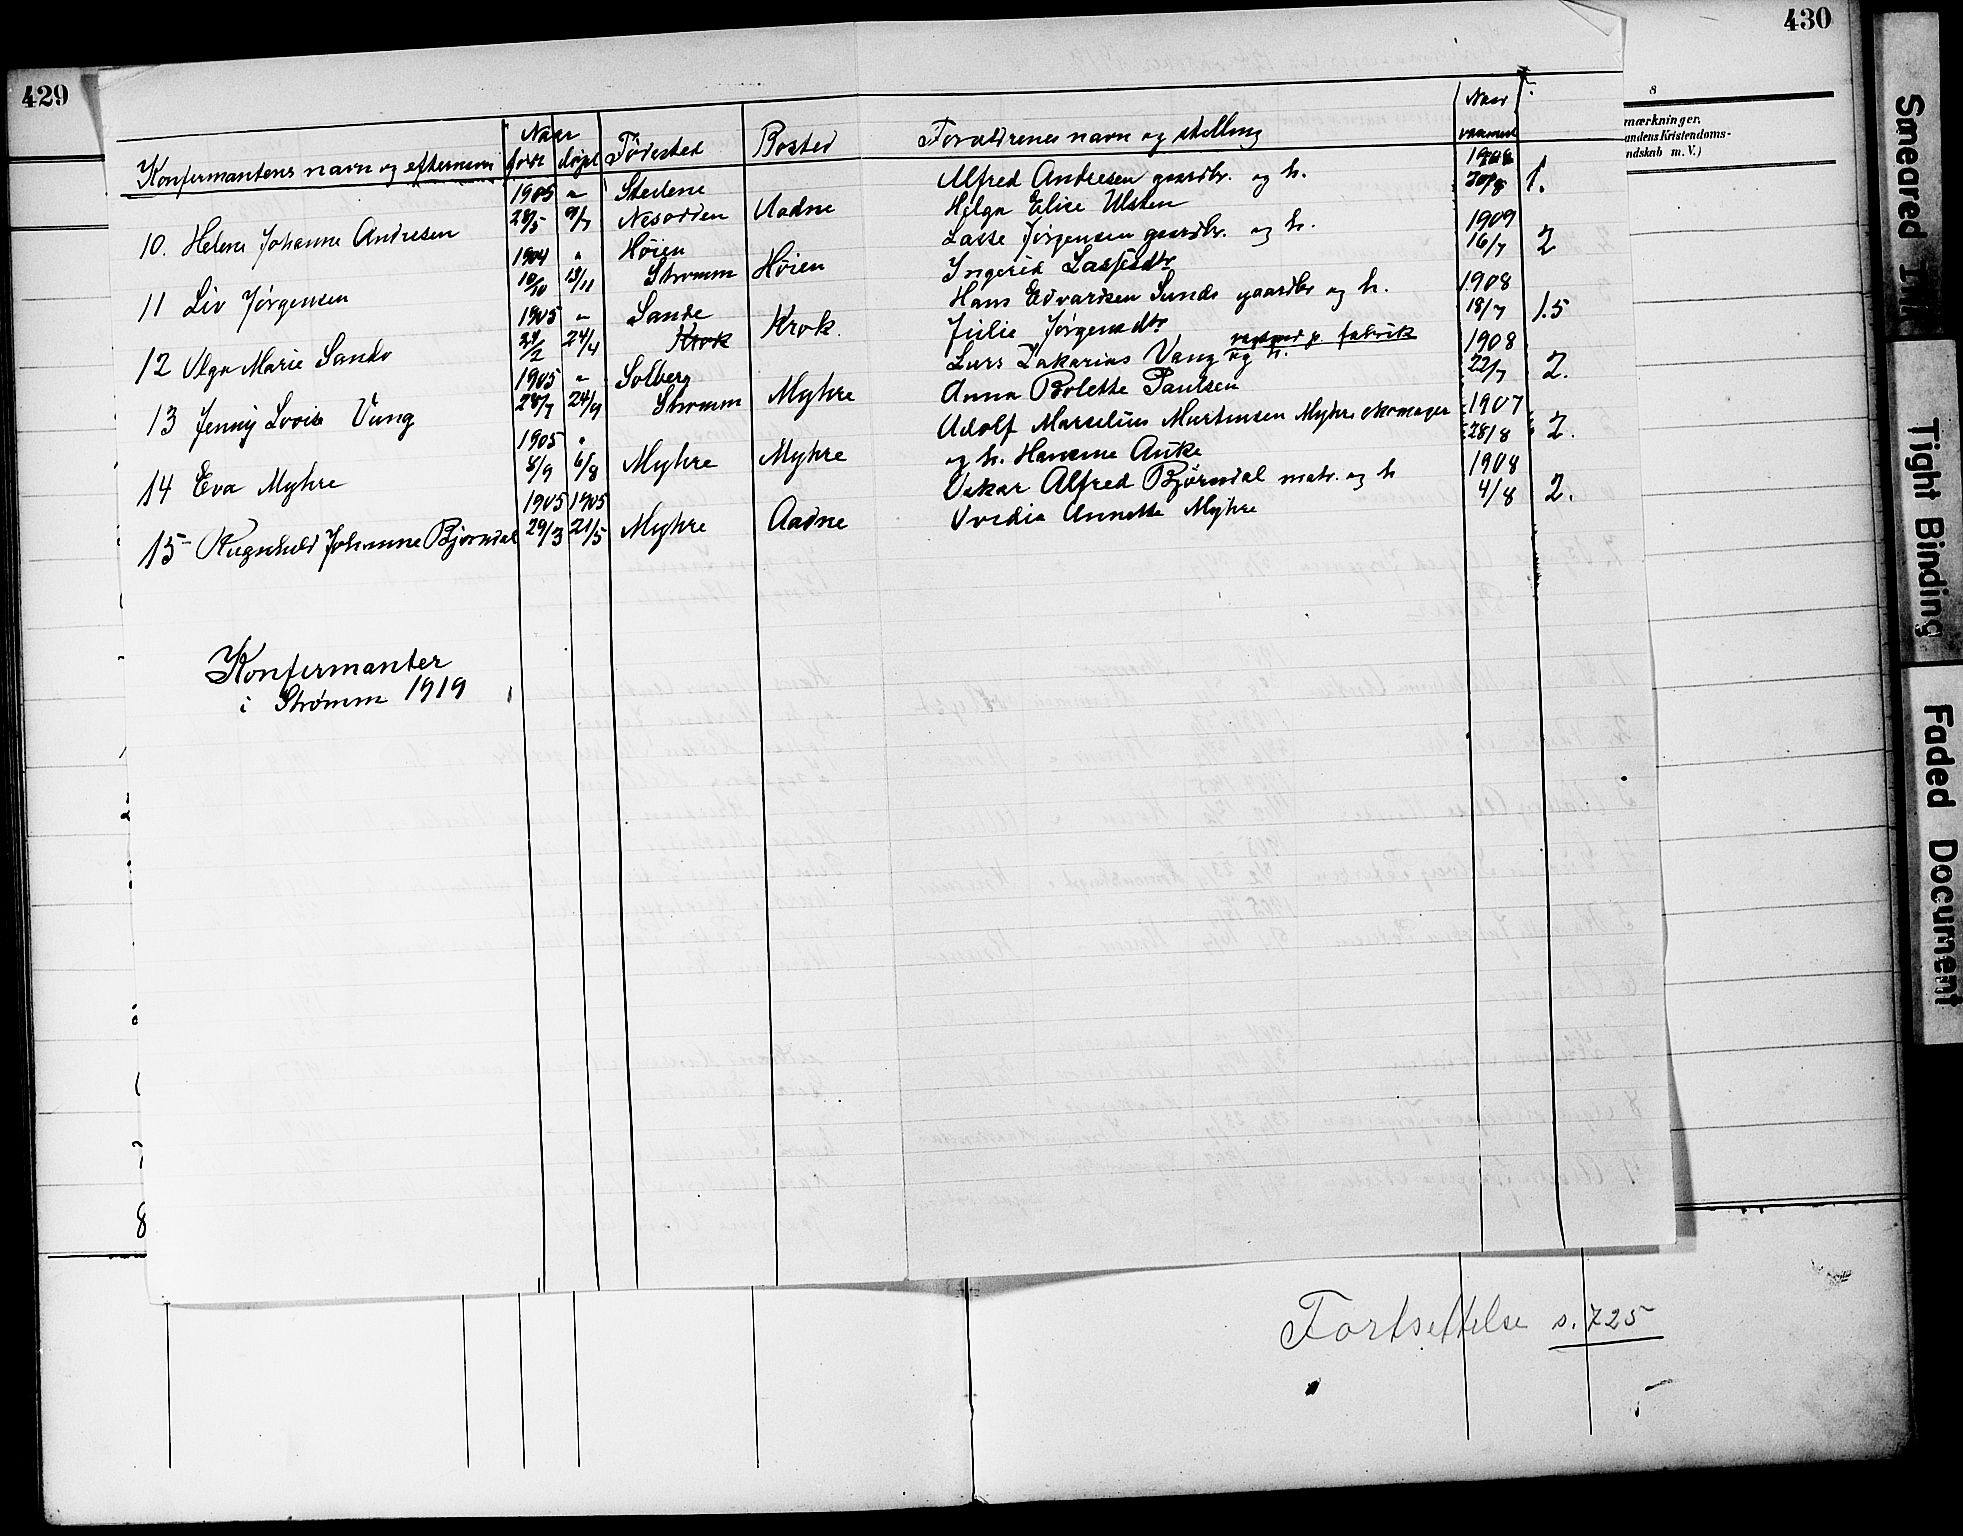 429
430
8
mærkninger.
andens Kristendoms-
ndskab m. V.)
Konfirmantens navn og efternavn Naar født døpt Fødested Bosted Forældrenes navn og stilling Naar vaxineret
10. Helene Johanne Andresen 1905 28/5 9/7 Stedene Nesodden Aadne Alfred Andresen gaardbr. og h. 1908 20/8 1.
Helga Elise Ulsten
11 Liv Jørgensen 1904 10/10 13/11 Høien Strømm Høien Lasse Jørgensen gaardbr. og h. 1909 16/7 2
Ingerid Lassesdtr
12 Olga Marie Sando 1905 28/2 24/4 Sande Krok Krok Hans Edvardsen Sundø gaardbr og h. 1908 18/7 1.5
Julie Jørgensdtr
13 Jenny Lovise Vang 1905 28/7 24/9 Solberg Strømm Myhre Lars Zakarias Vang og h. fabrik 1908 22/7 2.
Anna Bolette Paulsen
14 Eva Myhre 1905 8/9 6/8 Myhre Myhre Adolf Marselius Martinsen Myhre skomager 1907 28/8 2.
og h. Hansine Auke
15 Ragnhild Johanne Bjørndal 1905 29/3 1905 21/5 Myhre Aadne Oskar Alfred Bjørndal matr. og h 1908 4/8 2.
Ovidia Annette Myhre
Konfirmanter
i Strømm 1919
8
Fortsettelse s. 725
Smeared Ink
Tight Binding
Faded Document